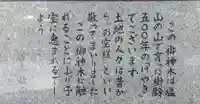 この御神木は塩
山の山で育った樹齢
五〇〇年のけやき
でございます
土地の人々は昔か
ら お宝様 といい
敬ってまいりました
この御神木に触
れることにより子
宝に恵まれるでし
ょう